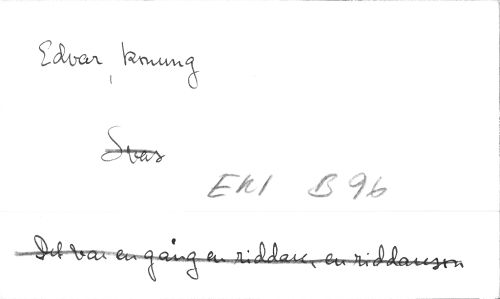 Edvar, konung
Svar
EKI B 96
Det var en gång en riddare, en riddareson